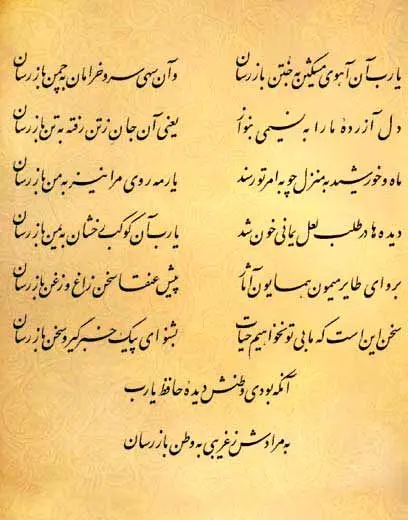 یارب آن آهوی مشکین به ختن بازرسان وآن سهی سرو خرامان به چمن بازرسان
دل آزردهٔ ما را به نسیمی بنواز یعنی آن جان زتن رفته به تن بازرسان
ماه و خورشید به منزل چو به امر تو رسند یار مه روی مرا نیز به من بازرسان
دیده‌ها در طلب لعل یمانی خون شد یارب آن کوکب رخشان به یمن بازرسان
برو ای طایر میمون همایون آثار پیش عنقا سخن زاغ و زغن بازرسان
سخن این است که ما بی تو نخواهیم حیات بشنو ای پیک خبرگیر و سخن بازرسان
آنکه بودی وطنش دیدهٔ حافظ یارب
به مرادش ز غریبی به وطن بازرسان